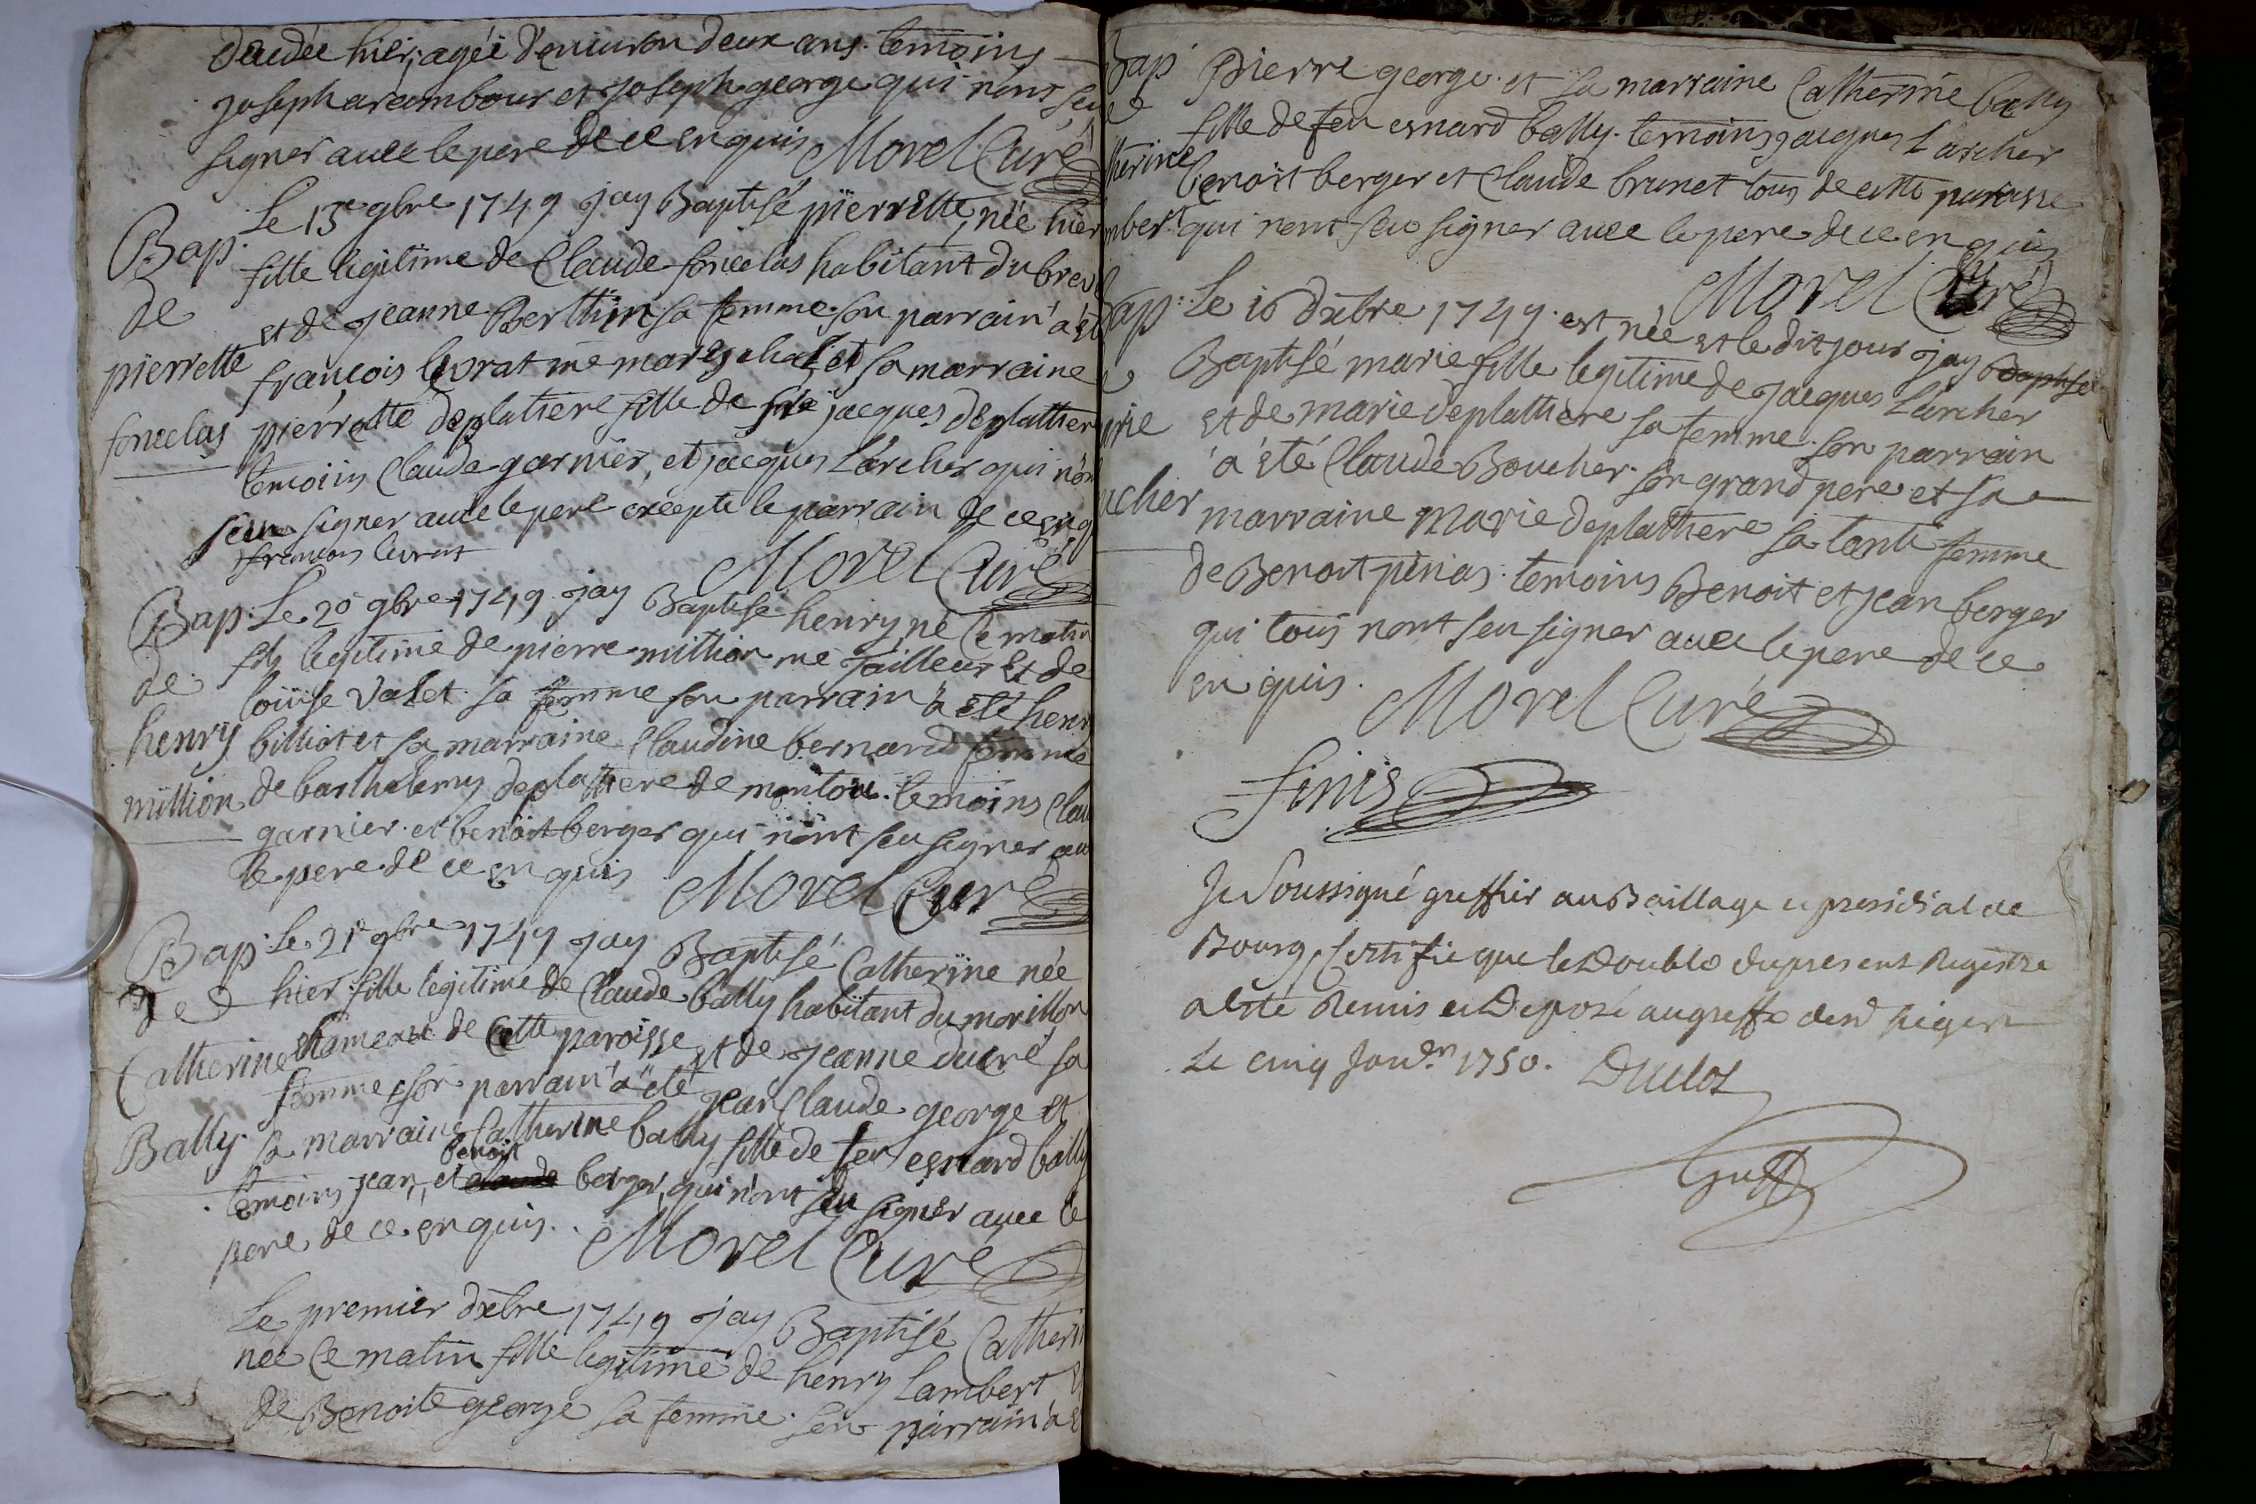 decedée hier, agéé d'enuiron deux ans. temoins
joseph arcambour et joseph george qui n'ont seu
signer auec le pere de ce enquis Morel Curé
Bap. de pierrette foncelas
Le 13e 9bre 1749 jay Baptisé pierrette, née hier
fille legitime de Claude foncelas habitant du breu
et de jeanne Berthin sa femme. son parrain a été
françois leurat me mareschal et sa marraine
pierrette deplatiere fille de feu jacques deplattier
temoins Claude garnier, et jacques Larcher qui n'ont
seu signer auec le pere excepté le parrain de ce enq
francois leurat
Morel Curé
Bap. de henry million
Le 20e 9bre 1749 jay Baptisé henry né ce matin
fils legitime de pierre million me tailleur et de
loüise Valet sa femme son parrain a été henry
billiot et sa marraine Claudine bernard femme
de barthelemy deplattiere de montou. temoins Clau
garnier et benoit berger qui n'ont seu signer au
le pere de ce enquis Morel Curé
Bap. de Catherine Bally.
Le 21e 9bre 1749 jay Baptisé Catherine née
hier fille legitime de Claude bally habitant du morillon
hameau de cette paroisse et de jeanne ducré sa
femme son parrain a été jean Claude george et
sa marraine Catherine bally fille de feu esnard bally
benoit
temoins jean, et claude berger, qui n'ont seu signer auec le
pere de ce enquis. Morel Curé
Le premier dxbre 1749 jay Baptisé Catherin
née ce matin fille legitime de henry Lambert et
de Benoite george sa femme. son parrain a é
Bap
de
therine
mbert
pierre george et sa marraine Catherine bally
fille de feu esnard bally. temoins jacques Larcher
benoit berger et Claude brunet tous de cette paroisse
qui nont seu signer auec le pere de ce enquis
Morel Curé
Bap.
de
arie
rcher
Le 10 dxbre 1749. est née et le dit jour jay Baptisé
Baptisé marie fille legitime de jacques Larcher
et de marie deplattiere sa femme. son parrain
a été Claude Boucher son grand pere et sa
marraine Marie deplattiere sa tante femme
de Benoit pinas. temoins Benoit et jean berger
qui tous nont seu signer auec le pere de ce
enquis. Morel Curé
finis
Je Soussigné greffier au Baillage et presidial de
Bourg Certifie que le Double du present Registre
a esté Remis et Deposé au greffe desd sieges
Le cinq Janer. 1750. Duclos
Greff